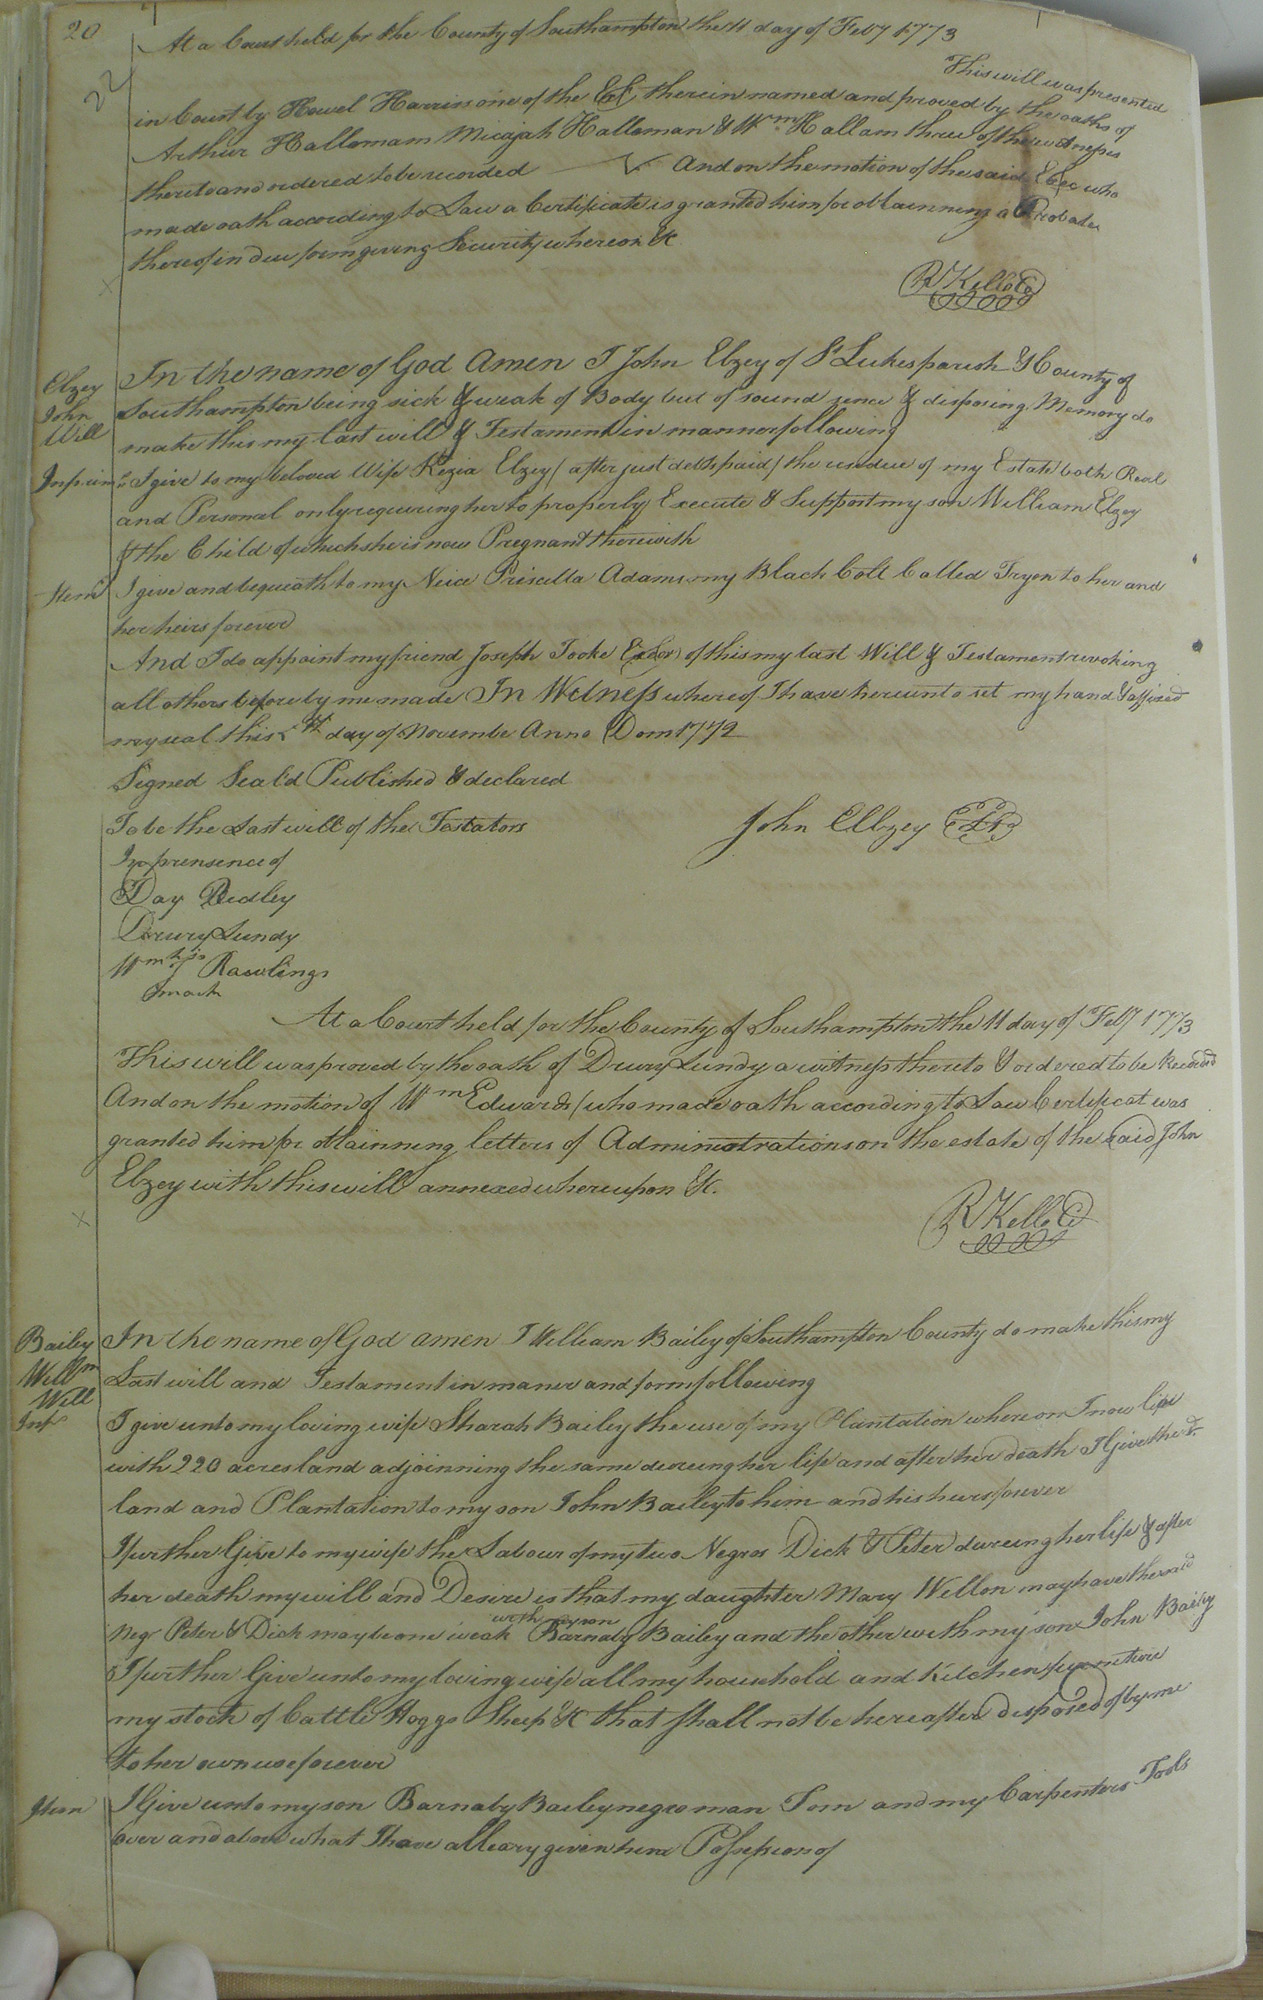 20
22
At a Court held for the County of Southampton the 11 day of Feby 1773
This will was presented
in Court by Howel Harris one of the Ex therein named and proved by the oaths of
Arthur Hallomam Micajah Halloman & Wm Hallam three of the witnesses
thereto and ordered to be recorded And on the motion of the said Exec who
made oath according to Law a Certificate is granted him for obtainning a Probate
thereof in due form giving Security whereon &c
R Kello Cl
Elzey John Will
In the name of God Amen I John Elzey of St Lukes parish & County of
Southampton being sick & weak of Body but of sound sence & disposing Memory do
make this my last will & Testament in manner following
Inprims I give to my beloved Wife Kezia Elzey (after just debts paid) the residue of my Estate both Real
and Personal only requiring her to properly Execute & Support my son William Elzey
& the Child of which she is now Pregnant therewith
Item I give and bequeath to my Neice Priscilla Adams my Black Colt Called Tryon to her and
her heirs forever
And I do appoint my friend Joseph Tooke Exdor of this my last Will & Testament revoking
all others before by me made In Witness whereof I have hereunto set my hand & affixed
my seal this day of Novembe Anno Dom 1772
Signed Seal'd Published & declared
To be the Last will of the Testators
In prensence of
John Ellzey
Day Ridley
Drury Lundy
Wm his Rawlings
mark
At a Court held for the County of Southampton the 11 day of Feby 1773
This will was proved by the oath of Drury Lundy a witness thereto & ordered to be Recorded
And on the motion of Wm Edwards (who made oath according to Law Certificat was
granted him for obtainning letters of Administrations on the estate of the said John
Elzey with this will annexed whereupon &c.
R Kello Cl
Bailey Willm Will
In the name of God amen I William Bailey of Southampton County do make this my
Last will and Testament in maner and form following
Inps I give unto my loving wife Sharah Bailey the use of my Plantation whereon I now live
with 220 acres land adjoinning the same dureing her life and after her death I Give the sd
land and Plantation to my son John Bailey to him and his heirs forever
I further Give to my wife the Labour of my two Negros Dick & Peter dureing her life & after
her death my will and Desire is that my daughter Mary Wellon may have the said
Negr Peter & Dick maybe one weak with my son Barnaby Bailey and the other with my son John Baily
I further Give unto my loving wife all my household and Kitchen furniture
my stock of Cattle Hoggs Sheep &c that shall not be hereafter disposed of by me
to her own use forever
Item I Give unto my son Barnaby Bailey negro man Tom and my Carpenters Tools
over and above what I have allready given him Possession of